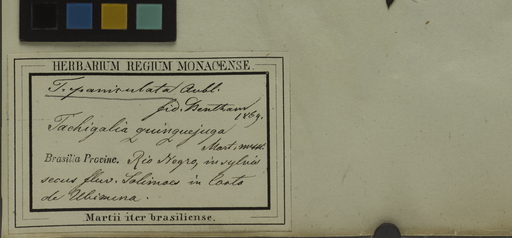 HERBARIUM REGIUM MONACENSE.
T. paniculata Aubl.
fid. Bentham
1869.
Tachigalia quinquejuga
Mart. mss.
Brasilia Provinc. Rio Negro, in sylvis
secus fluv. Solimoes in
de
Martii iter brasiliense.